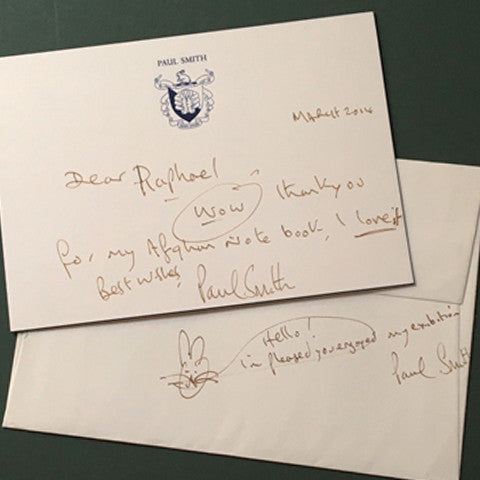 PAUL SMITH
MARCH 2014
Dear Raphael
WOW thankyou
for my Afghan Note book, I love it
Best Wishes,
Paul Smith
Hello!
i'm pleased you enjoyed my exhibition
Paul Smith